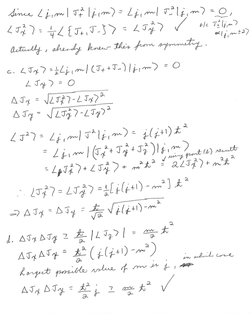 Since ⟨j,m| J₊² |j,m⟩ = ⟨j,m| J₋² |j,m⟩ = 0,
⟨Jx²⟩ = ¼⟨{J₊,J₋}⟩ = ⟨Jy²⟩ ✓
Actually, already knew this from symmetry.
c. ⟨Jx⟩ = ½⟨j,m| (J₊+J₋) |j,m⟩ = 0
⟨Jy⟩ = 0
ΔJx = √(⟨Jx²⟩-⟨Jx⟩²)
ΔJy = √(⟨Jy²⟩-⟨Jy⟩²)
⟨J²⟩ = ⟨j,m| J² |j,m⟩ = j(j+1)ħ²
= ⟨j,m| (Jx²+Jy²+Jz²) |j,m⟩
= ⟨Jx²⟩+⟨Jy²⟩+m²ħ² = 2⟨Jx²⟩+m²ħ²
using part (b) result
∴ ⟨Jx²⟩=⟨Jy²⟩=½[j(j+1)-m²]ħ²
⇒ ΔJx = ΔJy = ħ/√2 √(j(j+1)-m²)
d. ΔJx ΔJy ≥ ħ/2 |⟨Jz⟩| = m/2 ħ²
ΔJx ΔJy = ħ²/2 (j(j+1)-m²)
Largest possible value of m is j, in which case
ΔJx ΔJy = ħ²/2 j ≥ m/2 ħ² ✓